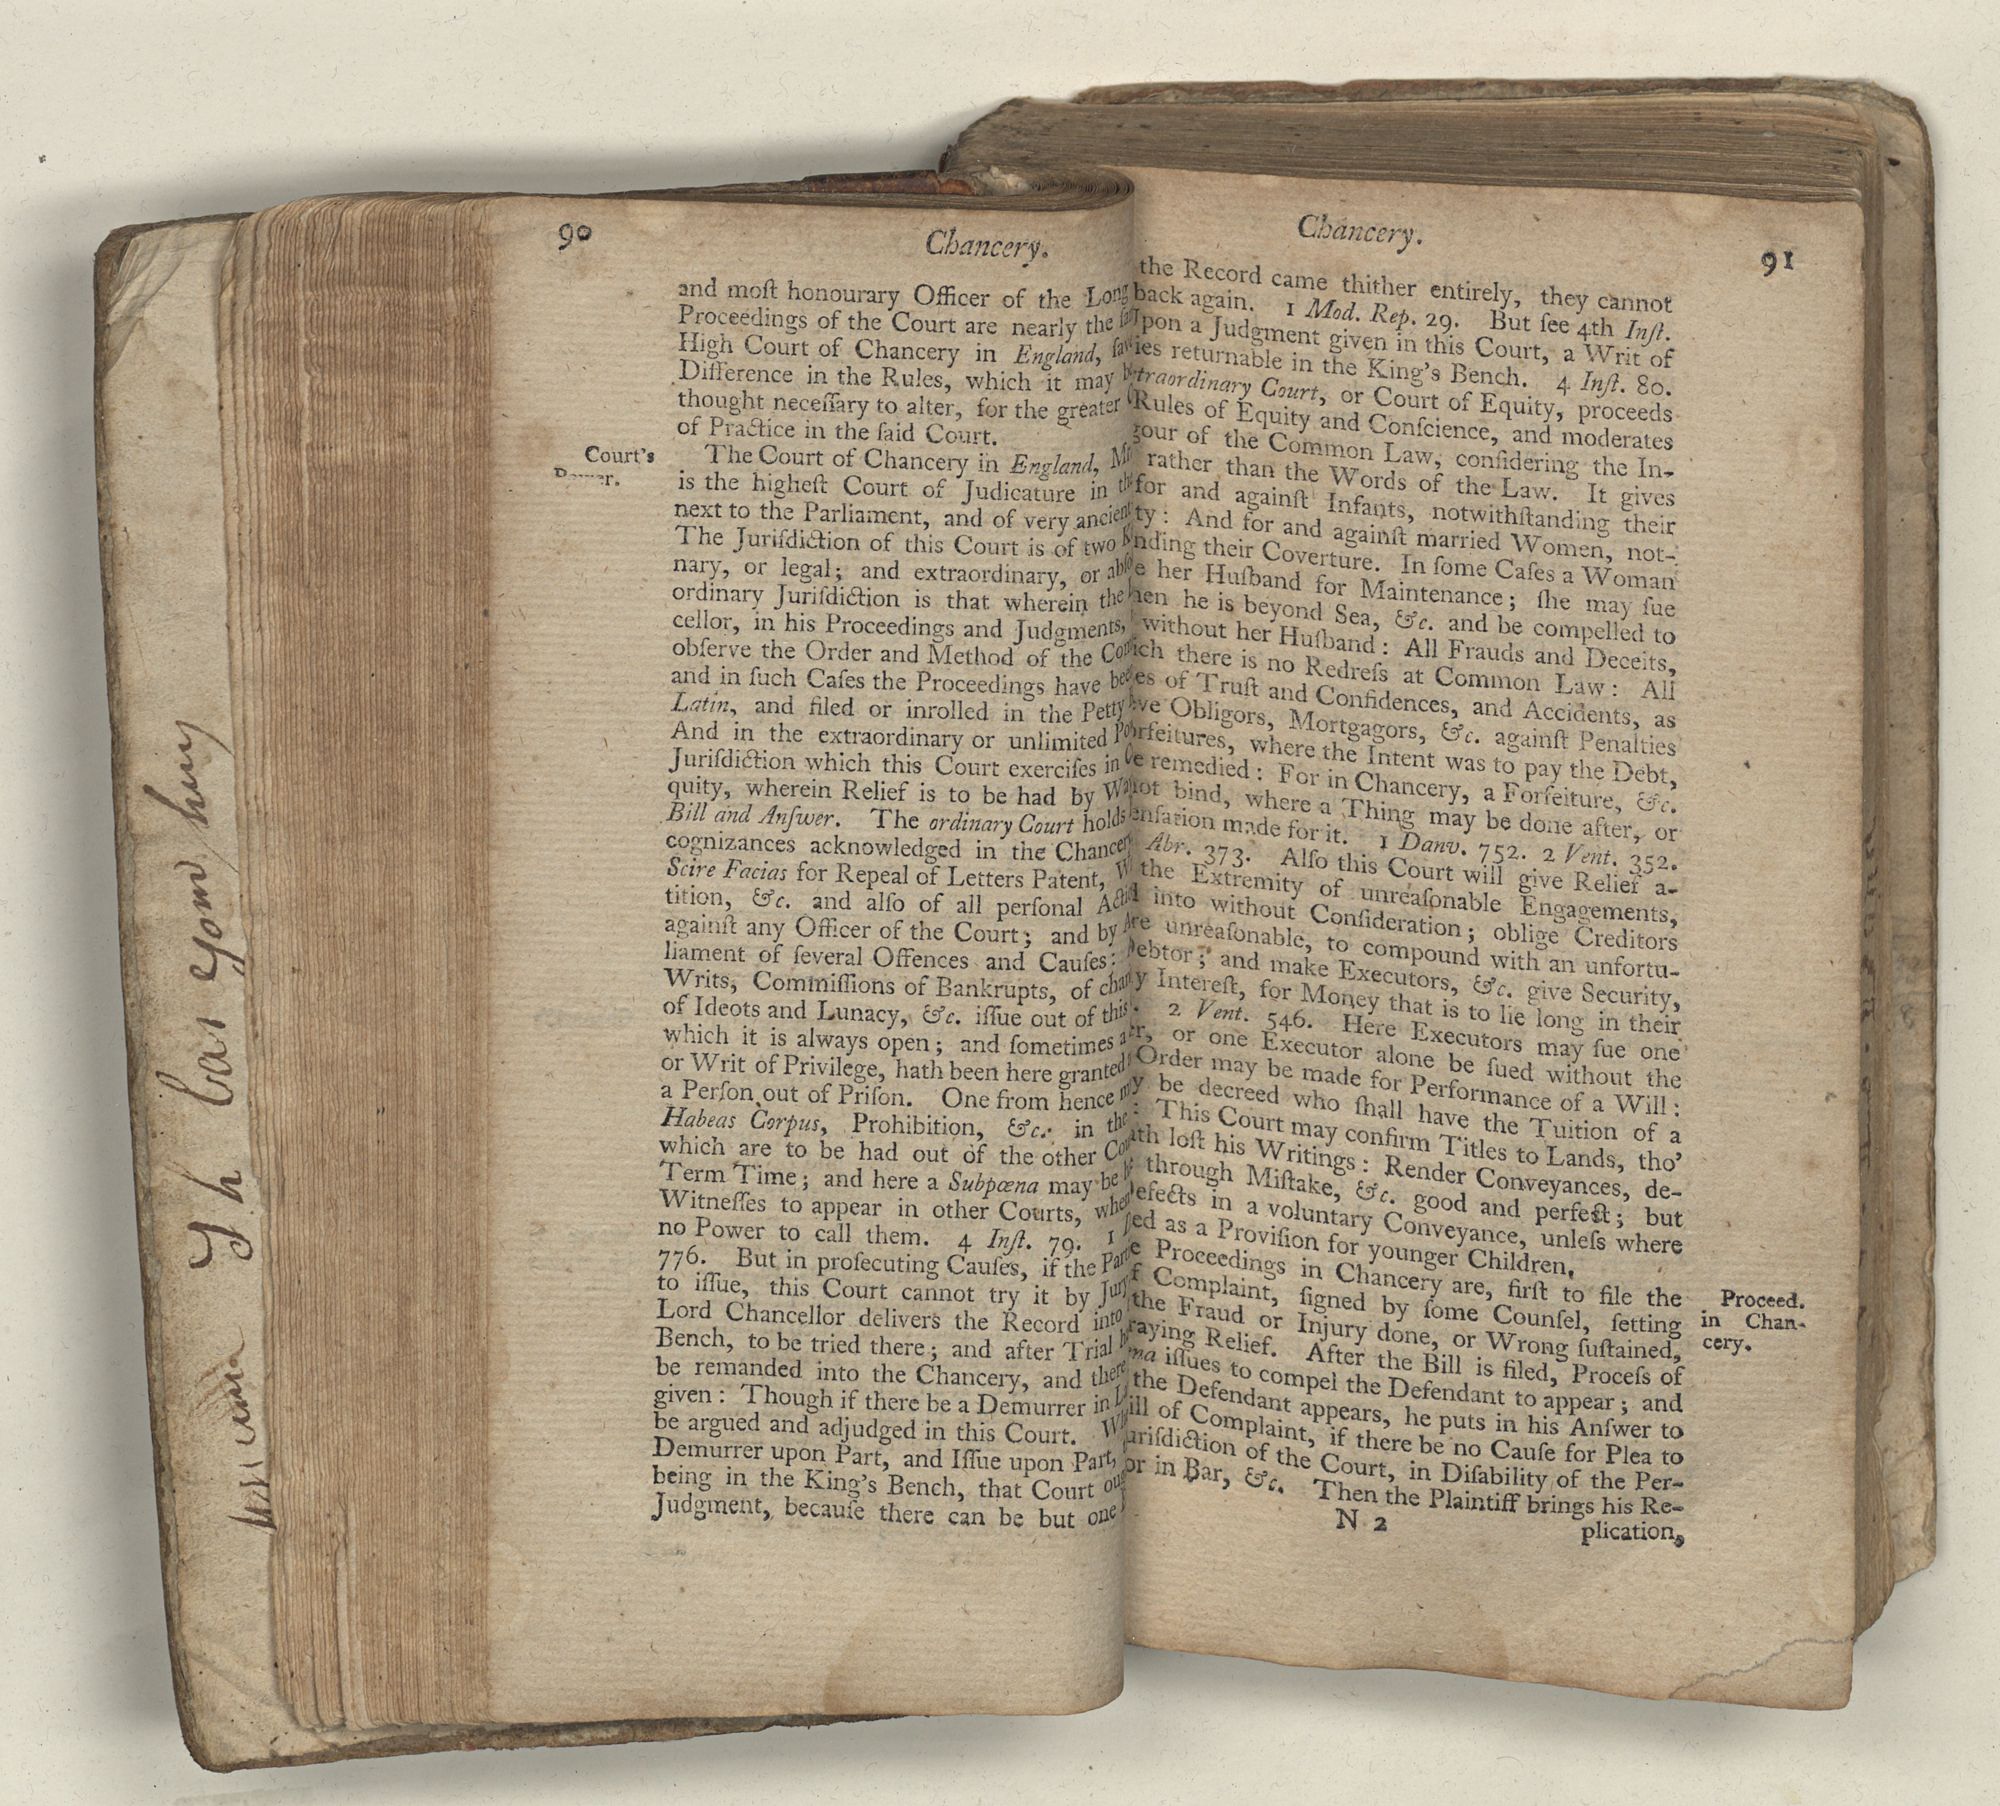 90
Chancery.
and moſt honourary Officer of the Long
Proceedings of the Court are nearly the
High Court of Chancery in England,
Difference in the Rules, which it may
thought neceſſary to alter, for the greater
of Practice in the ſaid Court.
Court's
The Court of Chancery in England,
is the higheſt Court of Judicature in
next to the Parliament, and of very ancient
The Juriſdiction of this Court is of two
nary, or legal; and extraordinary, or
ordinary Juriſdiction is that wherein the
cellor, in his Proceedings and Judgments,
obſerve the Order and Method of the
and in ſuch Caſes the Proceedings have
Latin, and filed or inrolled in the Petty
And in the extraordinary or unlimited
Juriſdiction which this Court exerciſes in
quity, wherein Relief is to be had by
Bill and Anſwer. The ordinary Court holds
cognizances acknowledged in the
Scire Facias for Repeal of Letters Patent,
tition, &c. and alſo of all perſonal
againſt any Officer of the Court; and by
liament of ſeveral Offences and Cauſes:
Writs, Commiſſions of Bankrupts, of
of Ideots and Lunacy, &c. iſſue out of this
which it is always open; and ſometimes a
or Writ of Privilege, hath been here granted
a Perſon out of Priſon. One from hence
Habeas Corpus, Prohibition, &c. in the
which are to be had out of the other
Term Time; and here a Subpœna may be
Witneſſes to appear in other Courts,
no Power to call them. 4 Inſt. 79. 1
776. But in proſecuting Cauſes, if the
to iſſue, this Court cannot try it by Jury
Lord Chancellor delivers the Record into
Bench, to be tried there; and after Trial
be remanded into the Chancery, and there
given: Though if there be a Demurrer in
be argued and adjudged in this Court.
Demurrer upon Part, and Iſſue upon Part,
being in the King's Bench, that Court
Judgment, becauſe there can be but one
Chancery.
91
the Record came thither entirely, they cannot
back again. 1 Mod. Rep. 29. But ſee 4th Inſt.
a Judgment given in this Court, a Writ of
returnable in the King's Bench. 4 Inſt. 80.
Court, or Court of Equity, proceeds
Rules of Equity and Conſcience, and moderates
of the Common Law, conſidering the In-
rather than the Words of the Law. It gives
for and againſt Infants, notwithſtanding their
And for and againſt married Women, not-
their Coverture. In ſome Caſes a Woman
her Huſband for Maintenance; ſhe may ſue
he is beyond Sea, &c. and be compelled to
without her Huſband: All Frauds and Deceits,
there is no Redreſs at Common Law: All
of Truſt and Confidences, and Accidents, as
Obligors, Mortgagors, &c. againſt Penalties
where the Intent was to pay the Debt,
remedied: For in Chancery, a Forfeiture, &c.
bind, where a Thing may be done after, or
made for it. 1 Danv. 752. 2 Vent. 352.
Abr. 373. Alſo this Court will give Relief a-
the Extremity of unreaſonable Engagements,
into without Conſideration; oblige Creditors
unreaſonable, to compound with an unfortu-
and make Executors, &c. give Security,
Intereſt, for Money that is to lie long in their
2 Vent. 546. Here Executors may ſue one
or one Executor alone be ſued without the
Order may be made for Performance of a Will:
be decreed who ſhall have the Tuition of a
This Court may confirm Titles to Lands, tho'
loſt his Writings: Render Conveyances, de-
through Miſtake, &c. good and perfect; but
in a voluntary Conveyance, unleſs where
as a Proviſion for younger Children.
Proceedings in Chancery are, firſt to file the
Proceed.
Complaint, ſigned by ſome Counſel, ſetting
in Chan-
the Fraud or Injury done, or Wrong ſuſtained,
cery.
Relief. After the Bill is filed, Proceſs of
iſſues to compel the Defendant to appear; and
the Defendant appears, he puts in his Anſwer to
of Complaint, if there be no Cauſe for Plea to
of the Court, in Diſability of the Per-
or in Bar, &c. Then the Plaintiff brings his Re-
N 2
plication,